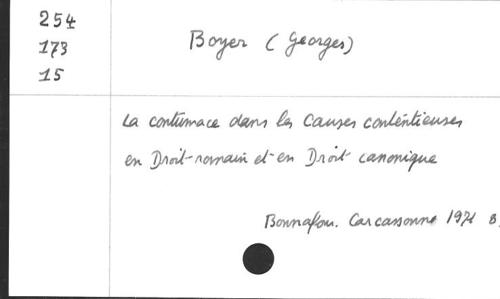 254
173
15
Boyer (Georges)
La contumace dans les causes contentieuses
en Droit-romain et-en Droit canonique
Bonnafou. Carcassonne 1971 8